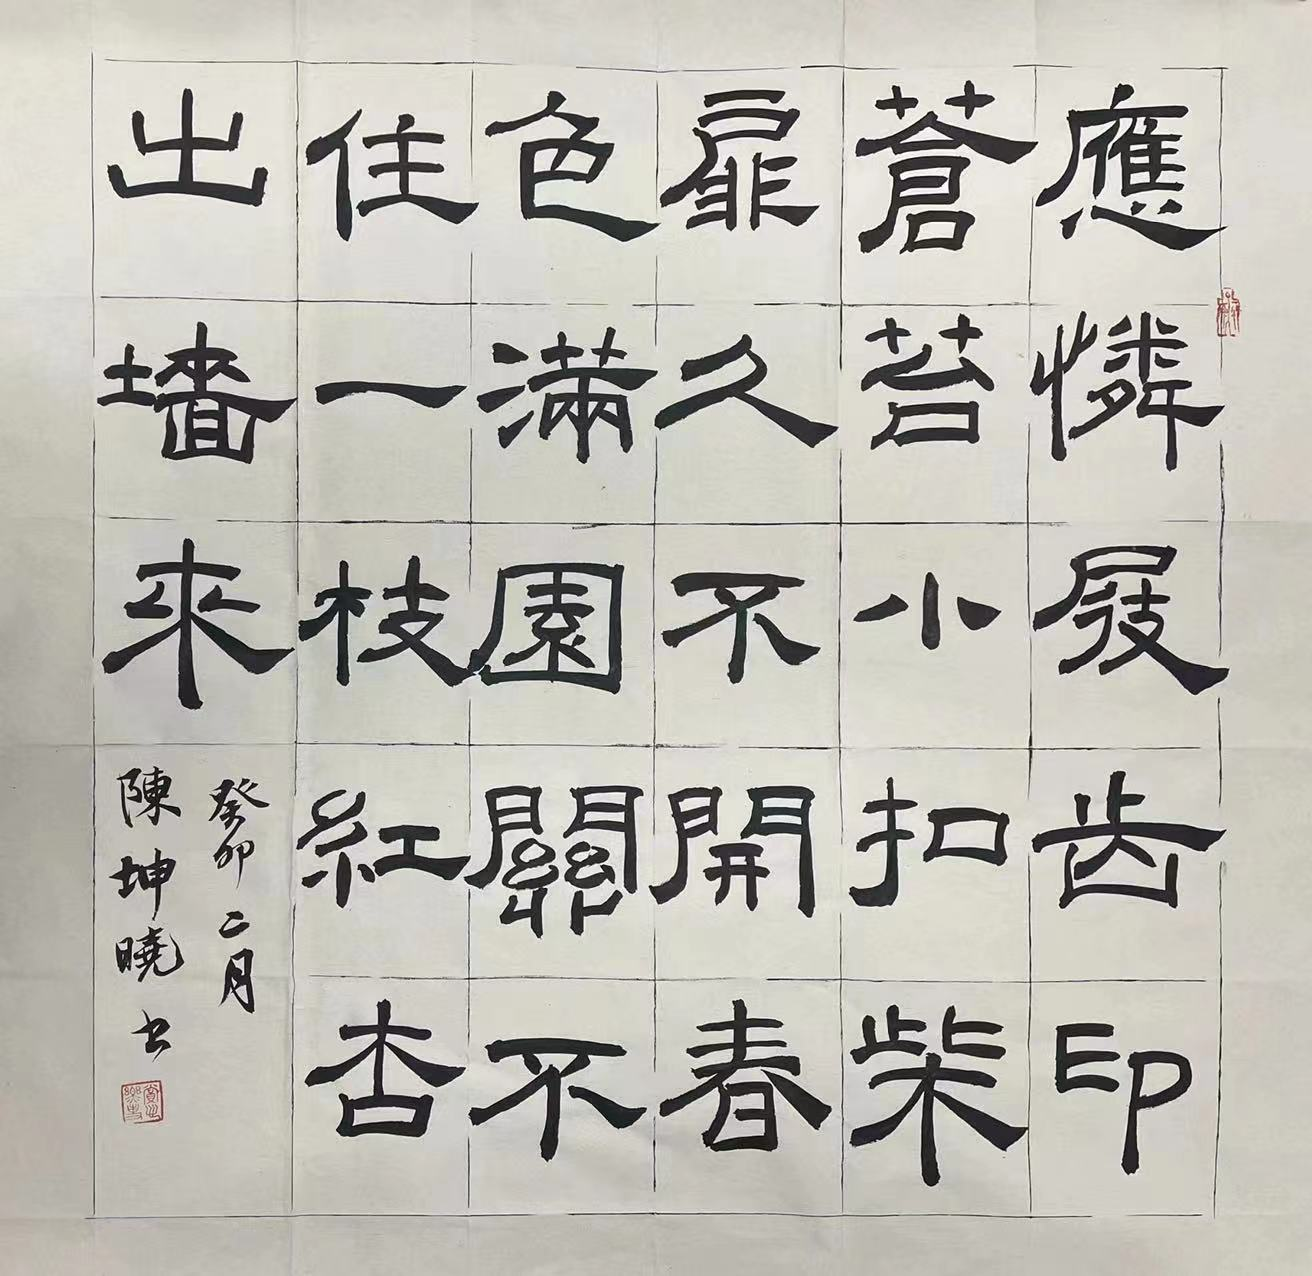 應憐屐齒印
蒼苔小扣柴
扉久不開春
色滿園關不
住一枝紅杏
出墻來
癸卯二月
陳坤曉书